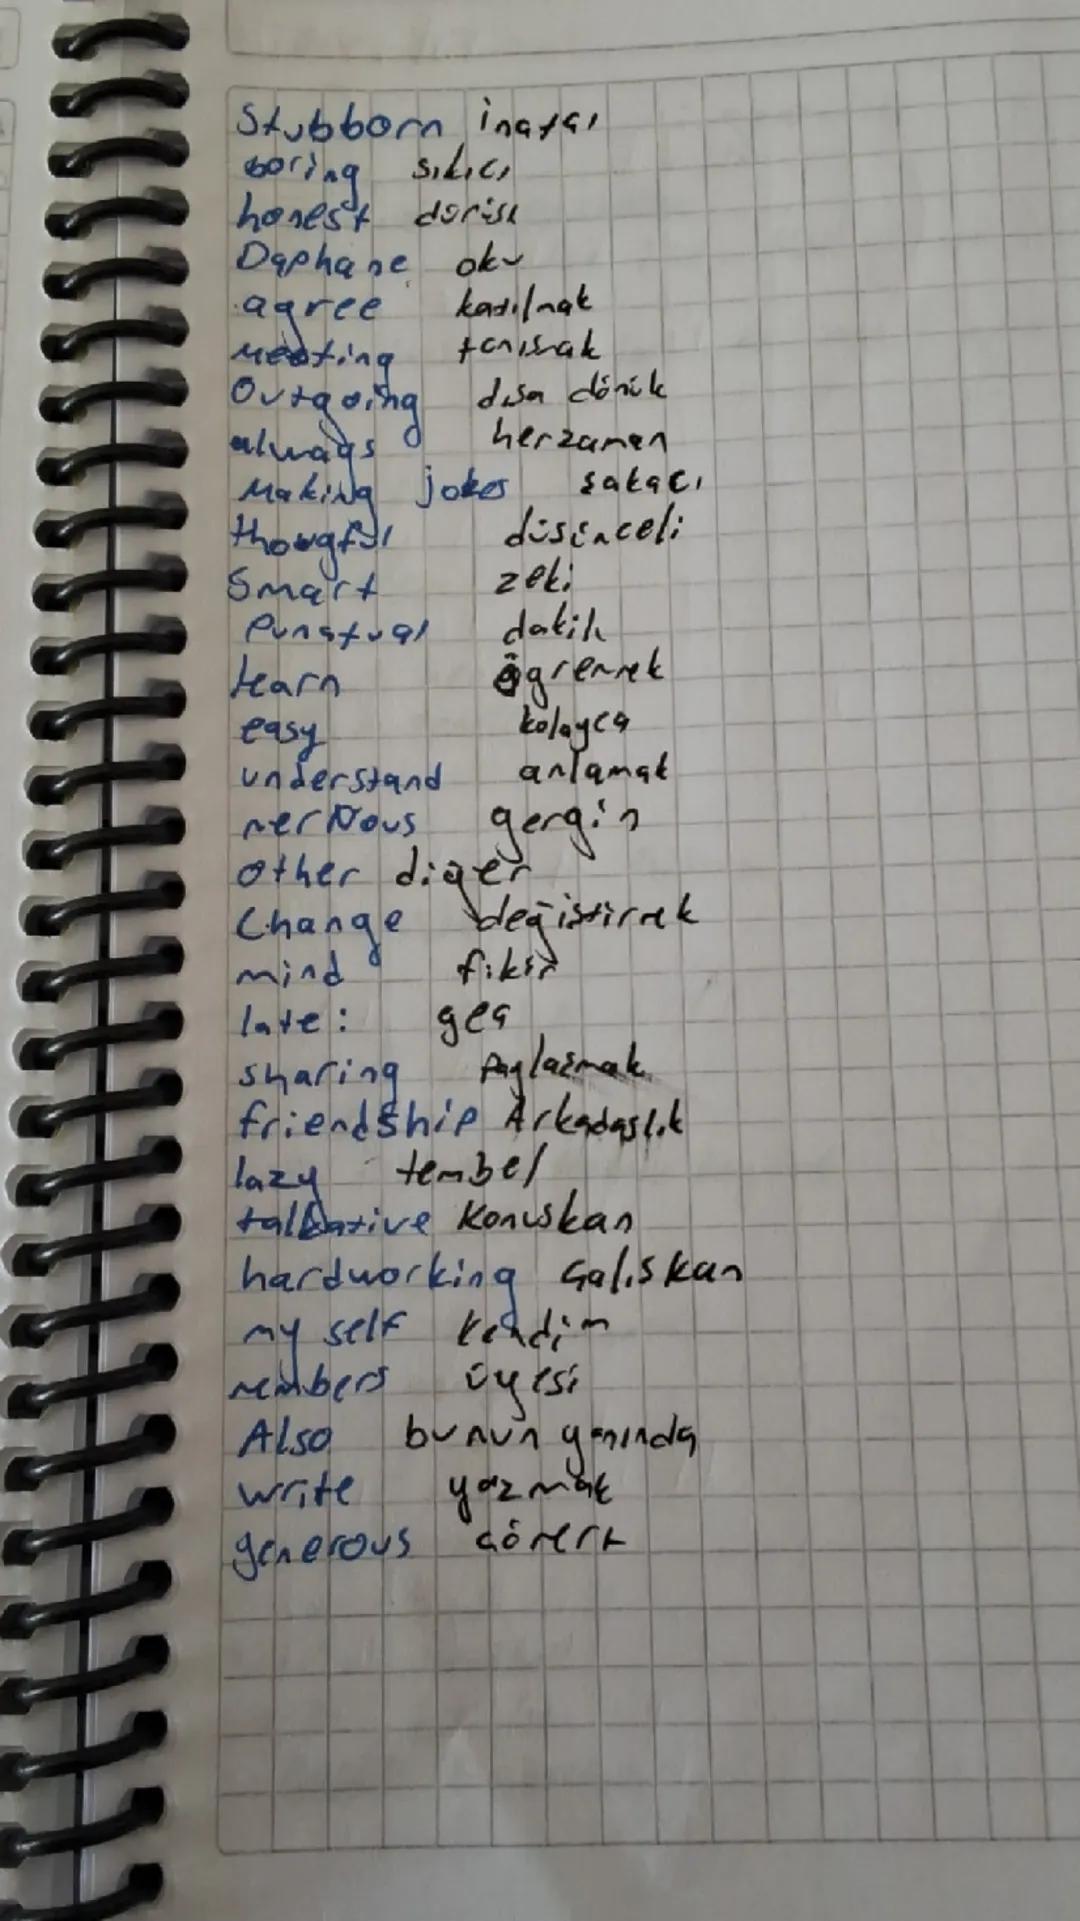 Stubborn inatçı
boring sıkıcı
honest dürüst
Daphane oku
agree katılmak
Meeting tanışmak
Outgoing dısa dönük
always herzaman
Making jokes şakacı
thougful düsünceli
Smart zeki
Punctual dakik
learn öğrenmek
easy kolayca
understand anlamak
nervous gergin
other diğer
Change değistirmek
mind fikir
late: geç
sharing Paylasmak
friendship Arkadaslık
lazy tembel
talkative Konuskan
hardworking Çalıskan
my self kendim
members üyesi
Also bunun yanında
write yazmak
generous cömert